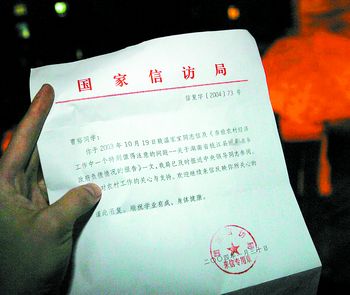 国家信访局
信复字〔2004〕73号
曹裕同学：
你于2003年10月19日致温宝宝同志信及《当前农村信访
工作中一个特别值得注意的问题--关于湖南省桃江县
政府负债情况的报告》一文，我局已及时报送中央领导同志参阅。
对农村工作的关心与支持。欢迎继续来信反映你所关心的
谨此函复。顺祝学业有成、身体健康。
二〇〇四年 月三十日
来信专用章